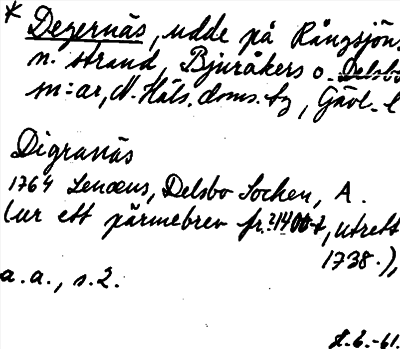 * Degernäs, udde på Rångsjöns
n. strand, Bjuråkers o. Delsbo
sn:ar, N. Häls. doms. tg, Gävl. l
Digranäs
1764 Lenæus, Delsbo Socken, A.
(ur ett pärmebrev fr. 1400-t, utrett
1738.),
a.a., s.2.